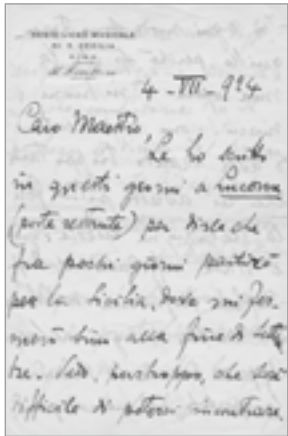 REGIO LICEO MUSICALE
DI S. CECILIA
ROMA
4 - VII - 924
Caro Maestro,
Le ho scritto
in questi giorni a Lucerna
(poste restante) per dirle che
fra pochi giorni partirò
per la Sicilia, dove mi fer-
merò fino alla fine di Settem
bre. Vedo, purtroppo, che sarà
difficile di poterci incontrare.